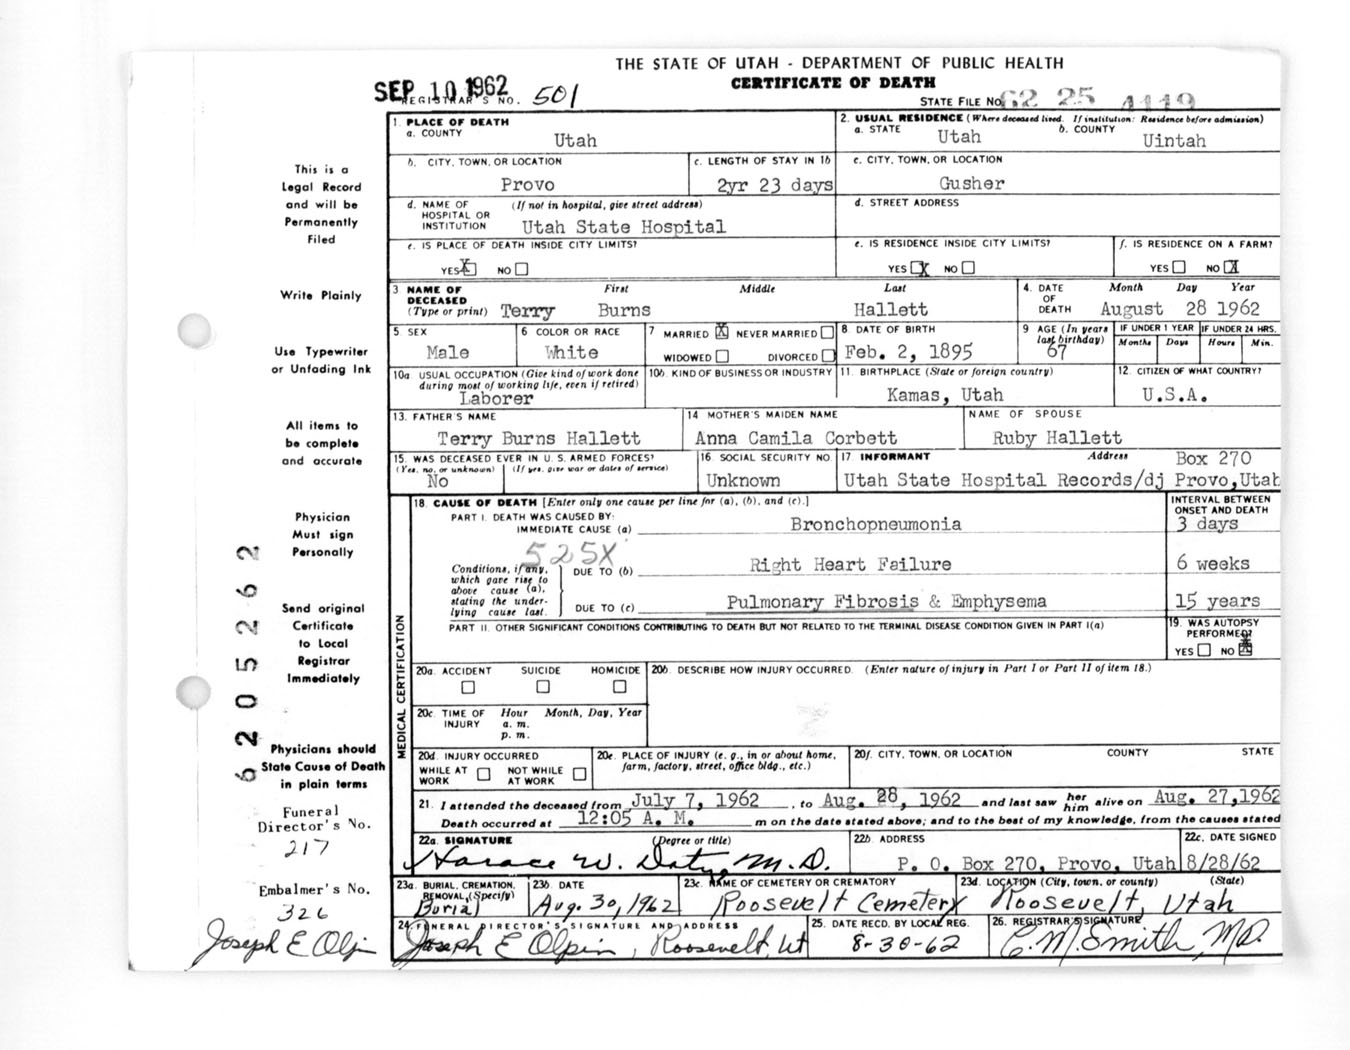 THE STATE OF UTAH - DEPARTMENT OF PUBLIC HEALTH
CERTIFICATE OF DEATH
SEP 10 1962
REGISTRAR'S NO. 501
STATE FILE NO. 62 25 4119
1. PLACE OF DEATH
a. COUNTY Utah
2. USUAL RESIDENCE (Where deceased lived. If institution: Residence before admission)
a. STATE Utah b. COUNTY Uintah
b. CITY, TOWN, OR LOCATION Provo
c. LENGTH OF STAY IN 1b 2yr 23 days
c. CITY, TOWN, OR LOCATION Gusher
d. NAME OF HOSPITAL OR INSTITUTION (If not in hospital, give street address) Utah State Hospital
d. STREET ADDRESS
e. IS PLACE OF DEATH INSIDE CITY LIMITS?
YES X NO
e. IS RESIDENCE INSIDE CITY LIMITS?
YES X NO
f. IS RESIDENCE ON A FARM?
YES NO X
3 NAME OF DECEASED (Type or print) First Middle Last
Terry Burns Hallett
4. DATE OF DEATH Month Day Year
August 28 1962
5. SEX Male
6 COLOR OR RACE White
7 MARRIED X NEVER MARRIED
WIDOWED DIVORCED
8 DATE OF BIRTH Feb. 2, 1895
9 AGE (In years last birthday) 67
IF UNDER 1 YEAR Months Days
IF UNDER 24 HRS. Hours Min.
10a. USUAL OCCUPATION (Give kind of work done during most of working life, even if retired)
Laborer
10b. KIND OF BUSINESS OR INDUSTRY
11. BIRTHPLACE (State or foreign country)
Kamas, Utah
12. CITIZEN OF WHAT COUNTRY?
U.S.A.
13. FATHER'S NAME
Terry Burns Hallett
14 MOTHER'S MAIDEN NAME
Anna Camila Corbett
NAME OF SPOUSE
Ruby Hallett
15. WAS DECEASED EVER IN U. S. ARMED FORCES?
(Yes, no, or unknown) (If yes, give war or dates of service)
No
16 SOCIAL SECURITY NO
Unknown
17 INFORMANT Address Box 270
Utah State Hospital Records/dj Provo,Utah
MEDICAL CERTIFICATION
18. CAUSE OF DEATH [Enter only one cause per line for (a), (b), and (c).]
INTERVAL BETWEEN ONSET AND DEATH
PART I. DEATH WAS CAUSED BY:
IMMEDIATE CAUSE (a) Bronchopneumonia 3 days
525X
Conditions, if any, which gave rise to above cause (a), stating the underlying cause last.
DUE TO (b) Right Heart Failure 6 weeks
DUE TO (c) Pulmonary Fibrosis & Emphysema 15 years
PART II. OTHER SIGNIFICANT CONDITIONS CONTRIBUTING TO DEATH BUT NOT RELATED TO THE TERMINAL DISEASE CONDITION GIVEN IN PART I(a)
19. WAS AUTOPSY PERFORMED?
YES NO X
20a. ACCIDENT SUICIDE HOMICIDE
20b. DESCRIBE HOW INJURY OCCURRED. (Enter nature of injury in Part I or Part II of item 18.)
20c. TIME OF INJURY Hour Month, Day, Year
a. m.
p. m.
20d. INJURY OCCURRED
WHILE AT WORK NOT WHILE AT WORK
20e. PLACE OF INJURY (e. g., in or about home, farm, factory, street, office bldg., etc.)
20f. CITY, TOWN, OR LOCATION COUNTY STATE
21. I attended the deceased from July 7, 1962, to Aug. 28, 1962 and last saw her him alive on Aug. 27,1962
Death occurred at 12:05 A. M. m on the date stated above; and to the best of my knowledge, from the causes stated
22a. SIGNATURE (Degree or title)
Horace W. Doty, M.D.
22b. ADDRESS
P. O. Box 270, Provo, Utah
22c. DATE SIGNED
8/28/62
23a. BURIAL, CREMATION, REMOVAL, (Specify)
Burial
23b. DATE
Aug. 30, 1962
23c. NAME OF CEMETERY OR CREMATORY
Roosevelt Cemetery
23d. LOCATION (City, town, or county) (State)
Roosevelt, Utah
24. FUNERAL DIRECTOR'S SIGNATURE AND ADDRESS
Joseph E Olpin, Roosevelt, Ut
25. DATE RECD. BY LOCAL REG.
8-30-62
26. REGISTRAR'S SIGNATURE
C. M. Smith, MD.
This is a
Legal Record
and will be
Permanently
Filed
Write Plainly
Use Typewriter
or Unfading Ink
All items to
be complete
and accurate
Physician
Must sign
Personally
Send original
Certificate
to Local
Registrar
Immediately
Physicians should
State Cause of Death
in plain terms
Funeral
Director's No.
217
Embalmer's No.
326
Joseph E Olpin
6205262